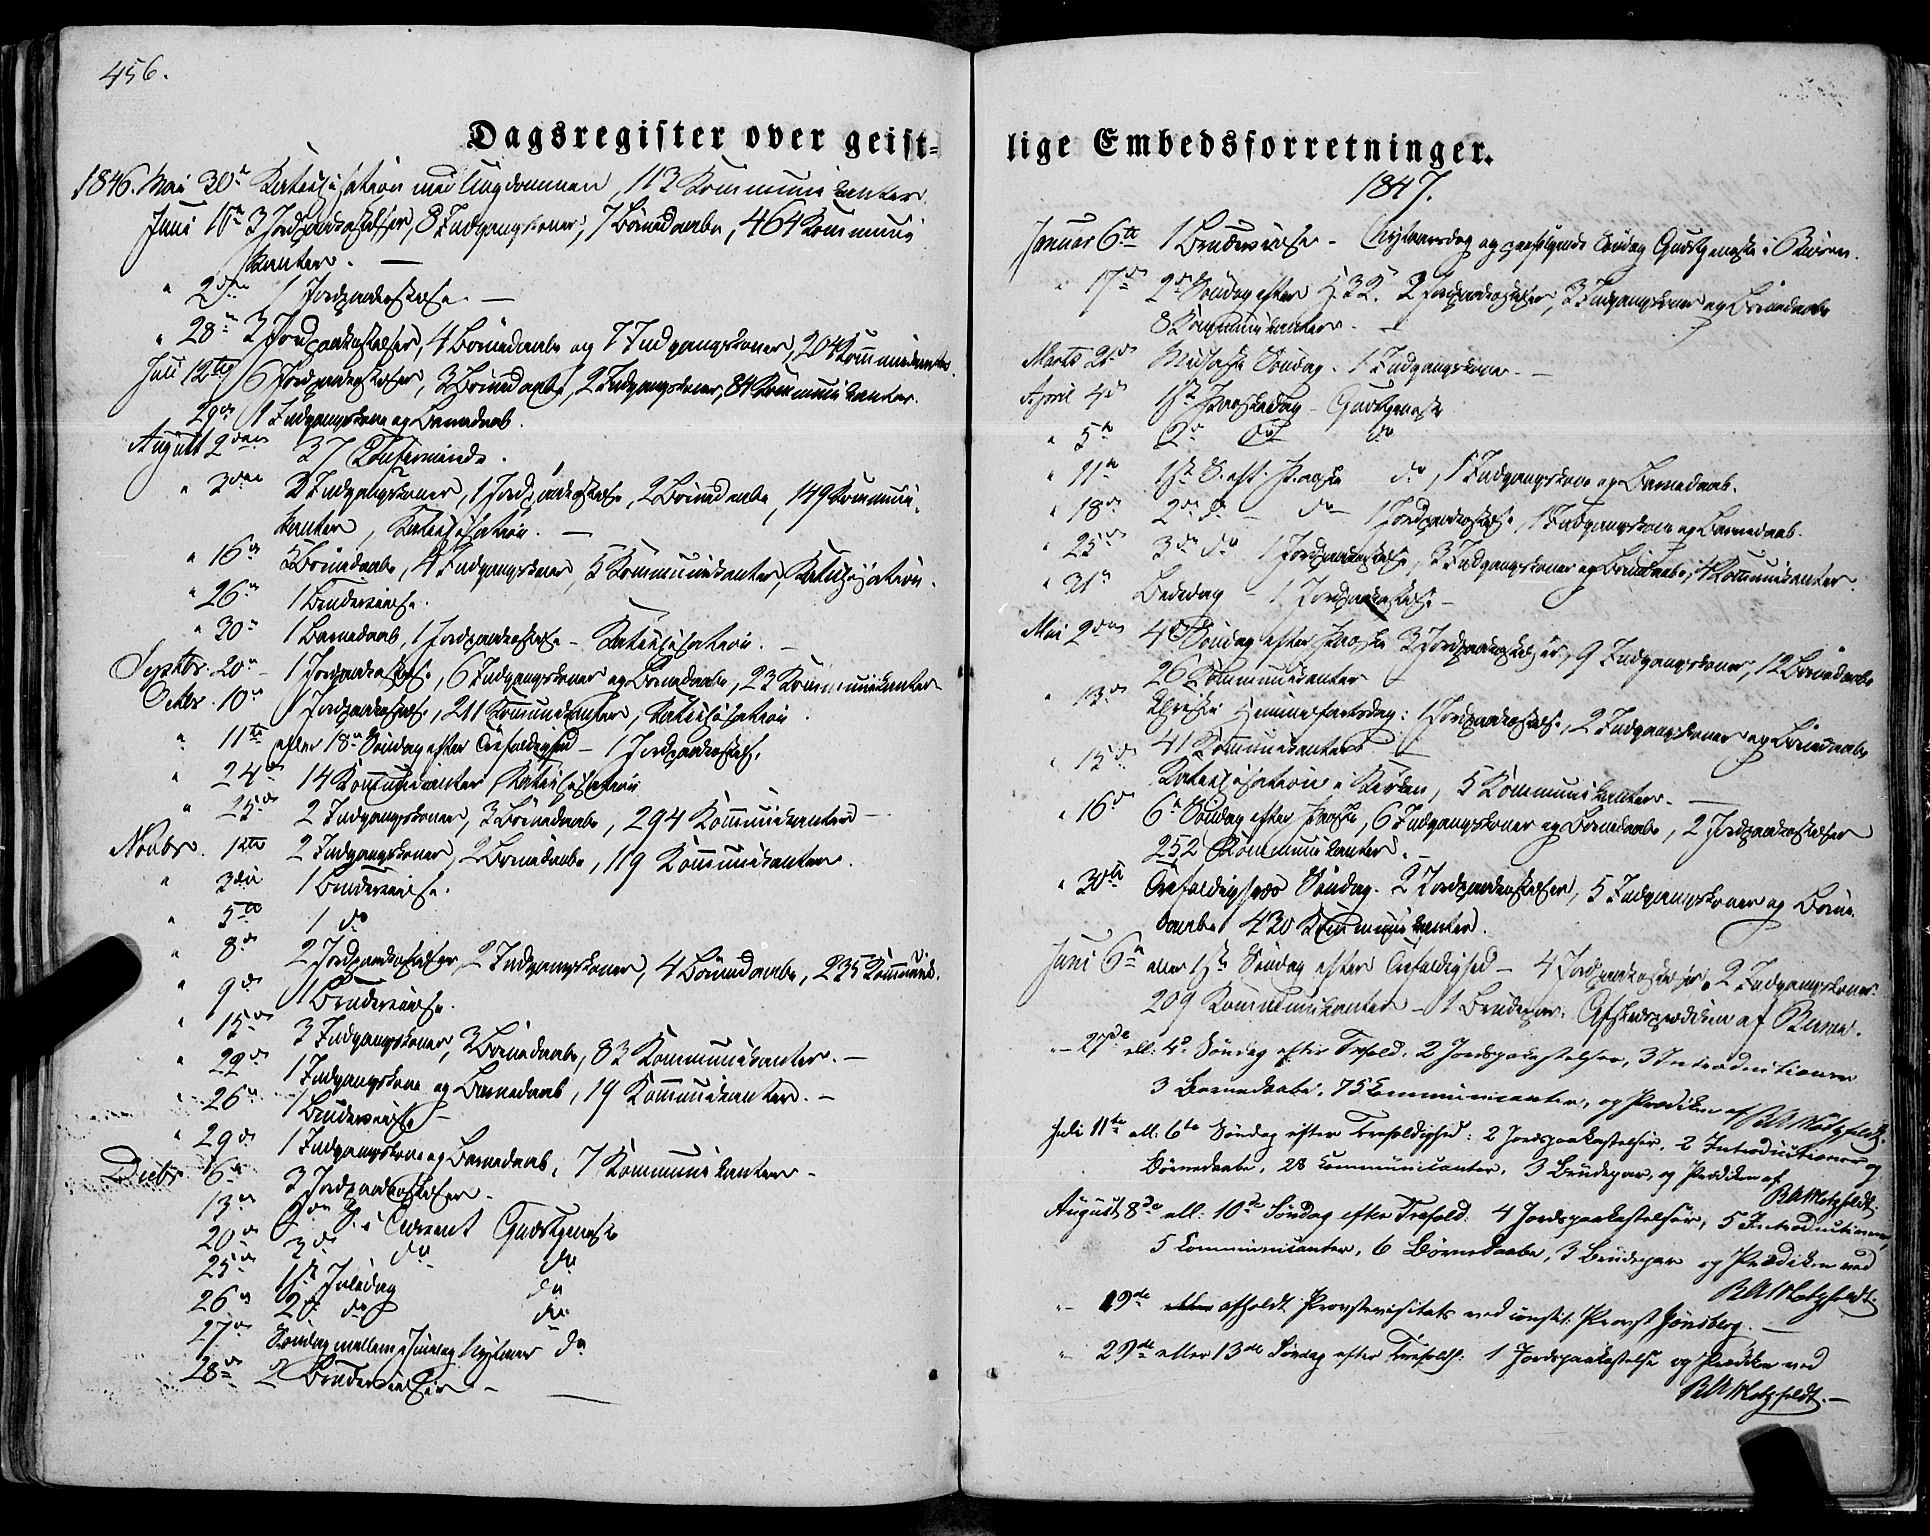 456.
Dagsregister over geist-
1846. Mai 30te Katechisation med Ungdommen, 113 Kommunikanter.
Juni 1te 3 Jordpaakastelser, 8 Indgangskoner, 7 Børnedaabe, 464 Kommuni
kanter. —
" 2den 1 Jordpaakastelse. —
" 28de 3 Jordpaakastelser, 4 Børnedaabe og 7 Indgangskoner, 204 Kommunikanter.
Juli 12te 6 Jordpaakastelser, 3 Børnedaabe, 2 Indgangskoner, 84 Kommunikanter.
29de 1 Indgangskone og Barnedaab.
August 2den 37 Confirmerede.
" 3den 3 Indgangskoner, 1 Jordpaakastelse, 2 Børnedaabe, 149 Kommuni-
kanter, Katechisation. —
" 16de 5 Børnedaabe, 4 Indgangskoner, 5 Kommunikanter, Katechisation.
" 26de 1 Brudevielse.
" 30te 1 Barnedaab, 1 Jordpaakastelse – Katechisation. —
Septbr. 20de 1 Jordpaakastelse, 6 Indgangskoner og Børnedaabe, 23 Kommunikanter
Octbr. 10de 1 Jordpaakastelse, 211 Kommunikanter, Katechisation.
" 11te eller 18de Søndag efter Trefoldighed – 1 Jordpaakastelse.
" 24de 14 Kommunikanter, Katechisation
" 25de 2 Indgangskoner, 3 Børnedaabe, 294 Kommunikanter —
Novbr. 1ste 2 Indgangskoner, 2 Børnedaabe, 119 Kommunikanter.
" 3die 1 Brudevielse.
" 5te 1 do
" 8de 2 Jordpaakastelser, 2 Indgangskoner, 4 Børnedaabe, 235 Kommunik.
" 9de 1 Brudevielse.
" 15de 3 Indgangskoner, 3 Børnedaabe, 83 Kommunikanter. —
" 22de 1 Indgangskone og Barnedaab, 19 Kommunikanter. —
" 26de 1 Brudevielse —
" 29de 1 Indgangskone og Barnedaab, 7 Kommunikanter —
Decbr 6te 3 Jordpaakastelser —
13de S. i Advent Gudstjeneste
20de 3de do do
25de 1ste Juledag do
26de 2de do do
27de Søndag mellem Juul og Nytaar do
28de 2 Brudevielser —
lige Embedsforretninger.
1847.
Januar 6te 1 Brudevielse – Nytaarsdag og paafølgende Søndag Gudstjeneste i
" 17de 2de Søndag efter H. 3 K. 2 Jordpaakastelser, 3 Indgangskoner og Børnedaabe
8 Kommunikanter. —
Marts 21de Midfaste Søndag. 1 Indgangskone. —
April 4de 1ste Paaskedag – Gudstjeneste
" 5te 2de do do
" 11te 1ste S. eft. Paaske do, 1 Indgangskone og Barnedaab.
" 18de 2den do – do 1 Jordpaakastelse, 1 Indgangskone og Barnedaab.
" 25de 3die do 1 Jordpaakastelse, 3 Indgangskoner og Børnedaabe, 4 Kommunikanter.
" Bededag – 1 Jordpaakastelse —
Mai 2den 4de Søndag efter Paaske 3 Jordpaakastelser, 9 Indgangskoner, 12 Børnedaabe
26 Kommunikanter
" 13de Christi Himmelfartsdag: 1 Jordpaakastelse, 2 Indgangskoner og Børnedaabe
41 Kommunikanter —
" 15de Katechisation i Kirken, 5 Kommunikanter. —
" 16de 6te Søndag efter Paaske, 6 Indgangskoner og Børnedaabe, 2 Jordpaakastelser
252 Kommunikanter. —
" 30te Trefoldigheds Søndag. 2 Jordpaakastelser, 5 Indgangskoner og Børne-
daabe 430 Kommunikanter.
Juni 6te eller 1ste Søndag efter Trefoldighed – 4 Jordpaakastelser, 2 Indgangskoner
209 Kommunikanter – 1 Brudepar. Afskedsprædiken af
" – 27de ell: 4de Søndag efter Trefold. 2 Jordspaakastelser, 3 Introductioner
3 Børnedaabe, 75 Communicanter, og Prædiken af B A Motzfeldt.
Juli 11te ell: 6te Søndag efter Trefoldighed: 2 Jordspaakastelser, 2 Introductioner og
Børnedaabe, 28 Communicanter, 3 Brudepar, og Prædiken af
BAMotzfeldt.
August 8de ell: 10de Søndag efter Trefold. 4 Jordspaakastelser, 5 Introductioner,
5 Communicanter, 6 Børnedaabe, 3 Brudepar og Prædiken ved
BAMotzfeldt.
" – 19de afholdt Provstevisitats ved const: Provst Jonsberg. —
" – 29de eller 13de Søndag efter Trefold: 1 Jordspaakastelse og Prædiken ved
BAMotzfeldt. —